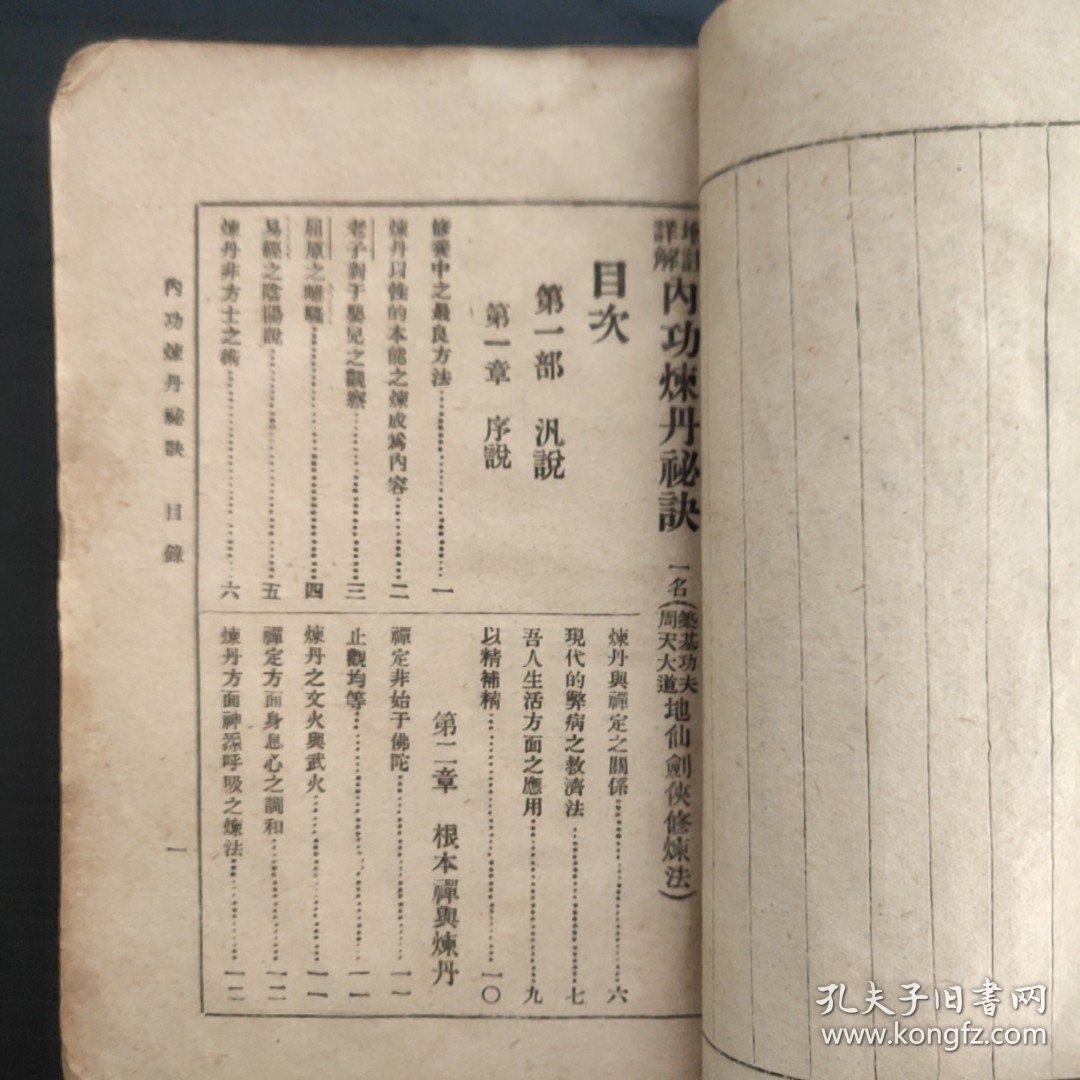 增訂
詳解
內功煉丹祕訣
一名(築基功夫
周天大道
地仙劍俠修煉法)
目次
第一部 汎說
第一章 序說
修養中之最良方法…………一
煉丹以性的本能之煉成爲內容…………二
老子對于嬰兒之觀察…………三
屈原之離騷…………四
易經之陰陽說…………五
煉丹非方士之術…………六
煉丹與禪定之關係…………六
現代的弊病之救濟法…………七
吾人生活方面之應用…………九
以精補精…………一〇
第二章 根本禪與煉丹
禪定非始于佛陀…………一一
止觀均等…………一一
煉丹之文火與武火…………一一
禪定方面身息心之調和…………一二
煉丹方面神炁呼吸之煉法…………一二
內功煉丹祕訣 目錄 一
孔夫子旧书网
www.kongfz.com